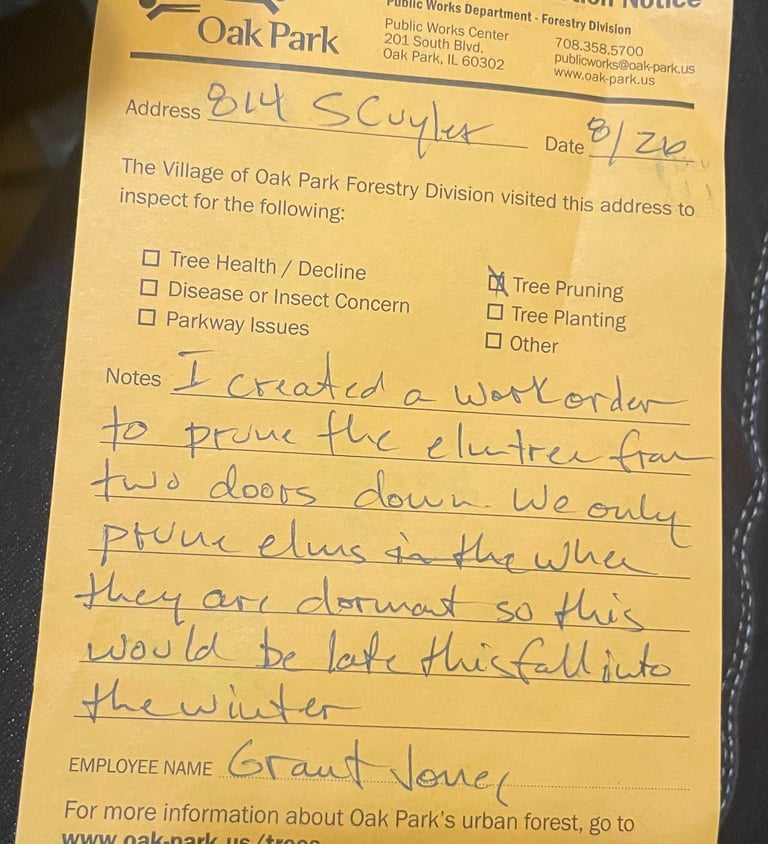 Notice
Oak Park
Public Works Department - Forestry Division
Public Works Center
201 South Blvd.
Oak Park, IL 60302
708.358.5700
publicworks@oak-park.us
www.oak-park.us
Address 814 S Cuyler Date 8/26
The Village of Oak Park Forestry Division visited this address to
inspect for the following:
☐ Tree Health / Decline
☐ Disease or Insect Concern
☐ Parkway Issues
☒ Tree Pruning
☐ Tree Planting
☐ Other
Notes I created a work order
to prune the elm tree from
two doors down. We only
prune elms in the when
they are dormant so this
would be late this fall into
the winter
EMPLOYEE NAME Grant Jones
For more information about Oak Park's urban forest, go to
www.oak-park.us/trees